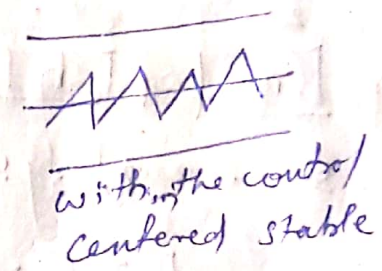 within the control
centered stable